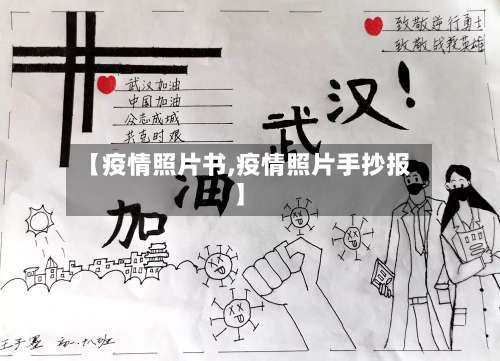 致敬逆行勇士
致敬战疫英雄
武汉加油
中国加油
众志成城
共克时艰
武汉！
加油
【疫情照片书,疫情照片手抄报
】
初一.十八班